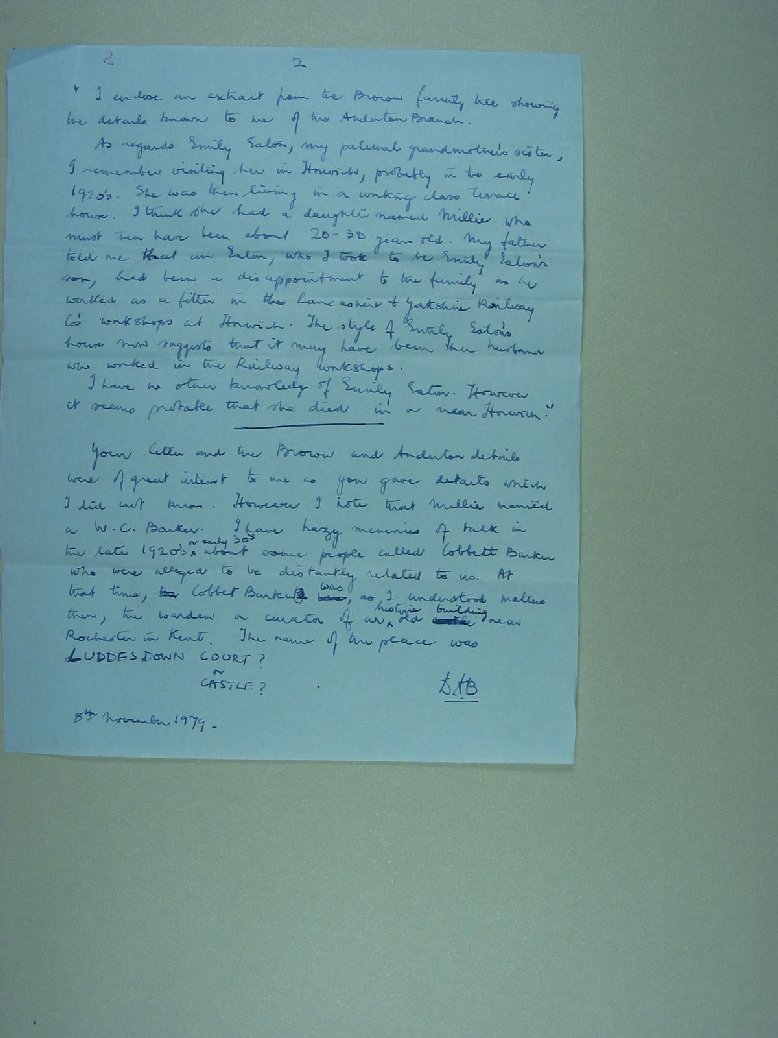 2 2
" I enclose an extract from the Brown family tree showing
the details known to me of the Anderton Branch.
As regards Emily Eaton, my paternal grandmother's sister,
I remember visiting her in Horwich, probably in the early
1920's. She was then living in a working class terrace
house. I think she had a daughter named Millie who
must then have been about 20-30 years old. My father
told me that an Eaton, who I took to be Emily Eaton's
son, had been a disappointment to the family as he
worked as a fitter in the Lancashire & Yorkshire Railway
Co's workshops at Horwich. The style of Emily Eaton's
house now suggests that it may have been her husband
who worked in the Railway workshops.
I have no other knowledge of Emily Eaton. However
it seems probable that she died in or near Horwich."
Your letter and the Brown and Anderton details
were of great interest to me as you gave details which
I did not know. However I note that Millie married
a W.C. Barker. I have hazy memories of talk in
the late 1920's or early 30s about some people called Cobbett Barker
who were alleged to be distantly related to us. At
that time, Cobbet Barker was, as I understood matters
then, the warden or curator of an historic old building near
Rochester in Kent. The name of the place was
LUDDESDOWN COURT?
or
CASTLE?
8th November 1979.